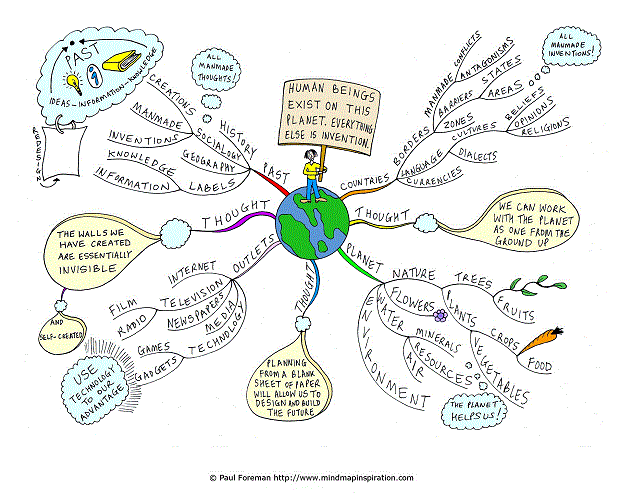 PAST
IDEAS-INFORMATION-KNOWLEDGE
REDESIGN
ALL
MANMADE
THOUGHTS!
HUMAN BEINGS
EXIST ON THIS
PLANET. EVERYTHING
ELSE IS INVENTION.
ALL
MANMADE
INVENTIONS!
PAST
HISTORY
CREATIONS
SOCIALOGY
MANMADE
GEOGRAPHY
INVENTIONS
KNOWLEDGE
LABELS
INFORMATION
COUNTRIES
BORDERS
MANMADE
CONFLICTS
ANTAGONISMS
BARRIERS
STATES
AREAS
ZONES
LANGUAGE
CULTURES
BELIEFS
OPINIONS
RELIGIONS
DIALECTS
CURRENCIES
THOUGHT
THE WALLS WE
HAVE CREATED
ARE ESSENTIALLY
INVISIBLE
AND
SELF-CREATED
THOUGHT
WE CAN WORK
WITH THE PLANET
AS ONE FROM THE
GROUND UP
OUTLETS
INTERNET
TELEVISION
FILM
RADIO
NEWSPAPERS
MEDIA
TECHNOLOGY
GAMES
GADGETS
USE
TECHNOLOGY
TO OUR
ADVANTAGE
THOUGHT
PLANNING
FROM A BLANK
SHEET OF PAPER
WILL ALLOW US TO
DESIGN AND BUILD
THE FUTURE
PLANET
NATURE
TREES
FRUITS
FLOWERS
PLANTS
CROPS
FOOD
VEGETABLES
WATER
MINERALS
RESOURCES
AIR
ENVIRONMENT
THE PLANET
HELPS US!
© Paul Foreman http://www.mindmapinspiration.com